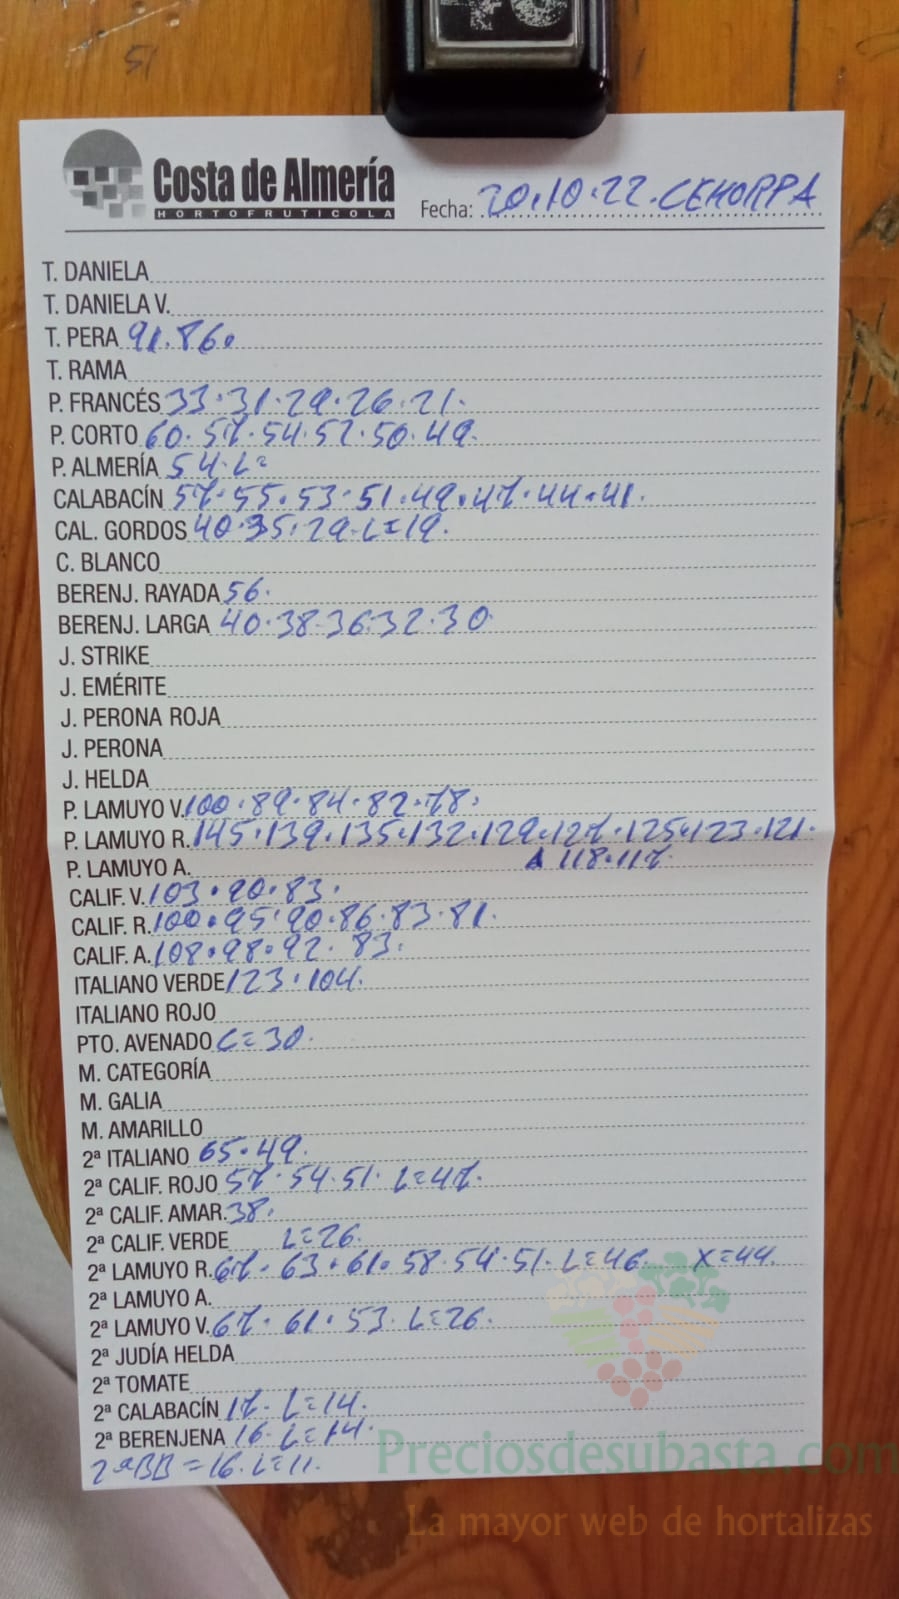 51
Costa de Almería
HORTOFRUTICOLA
Fecha: 20.10.22. CEHORPA
T. DANIELA
T. DANIELA V.
T. PERA 91. 86.
T. RAMA
P. FRANCÉS 33. 31. 29. 26. 21.
P. CORTO 60. 57. 54. 52. 50. 49.
P. ALMERÍA 54. L=
CALABACÍN 57. 55. 53. 51. 49. 47. 44. 41.
CAL. GORDOS 40. 35. 29. L=19.
C. BLANCO
BERENJ. RAYADA 56.
BERENJ. LARGA 40. 38. 36. 32. 30.
J. STRIKE
J. EMÉRITE
J. PERONA ROJA
J. PERONA
J. HELDA
P. LAMUYO V. 100. 89. 84. 82. 78.
P. LAMUYO R. 145. 139. 135. 132. 129. 127. 125. 123. 121.
P. LAMUYO A. 118. 117.
CALIF. V. 103. 90. 83.
CALIF. R. 100. 95. 90. 86. 83. 81.
CALIF. A. 108. 98. 92. 83.
ITALIANO VERDE 123. 104.
ITALIANO ROJO
PTO. AVENADO C=30.
M. CATEGORÍA
M. GALIA
M. AMARILLO
2ª ITALIANO 65. 49.
2ª CALIF. ROJO 57. 54. 51. L=47.
2ª CALIF. AMAR. 38.
2ª CALIF. VERDE L=26.
2ª LAMUYO R. 67. 63. 61. 58. 54. 51. L=46. X=44.
2ª LAMUYO A.
2ª LAMUYO V. 67. 61. 53. L=26.
2ª JUDÍA HELDA
2ª TOMATE
2ª CALABACÍN 17. L=14.
2ª BERENJENA 16. L=14.
2ª BB = 16. L=11.
Preciosdesubasta.com
La mayor web de hortalizas